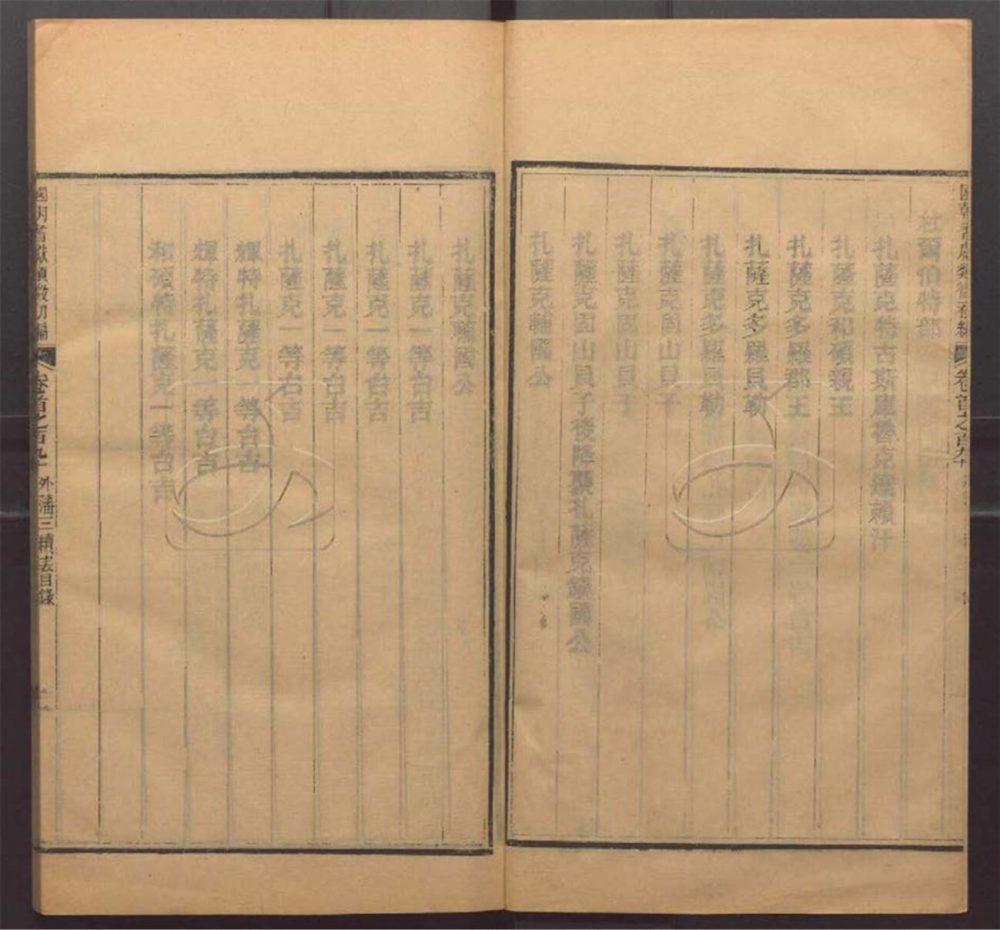 杜爾伯特部
扎薩克特古斯庫魯克達賴汗
扎薩克和碩親王
扎薩克多羅郡王
扎薩克多羅貝勒
扎薩克多羅貝勒
扎薩克固山貝子
扎薩克固山貝子
扎薩克固山貝子後降襲扎薩克鎮國公
扎薩克輔國公
扎薩克輔國公
扎薩克一等台吉
扎薩克一等台吉
扎薩克一等台吉
扎薩克一等台吉
輝特扎薩克一等台吉
輝特扎薩克一等台吉
和碩特扎薩克一等台吉
國朝耆獻類徵初編
卷首之百九
外藩三績表目錄